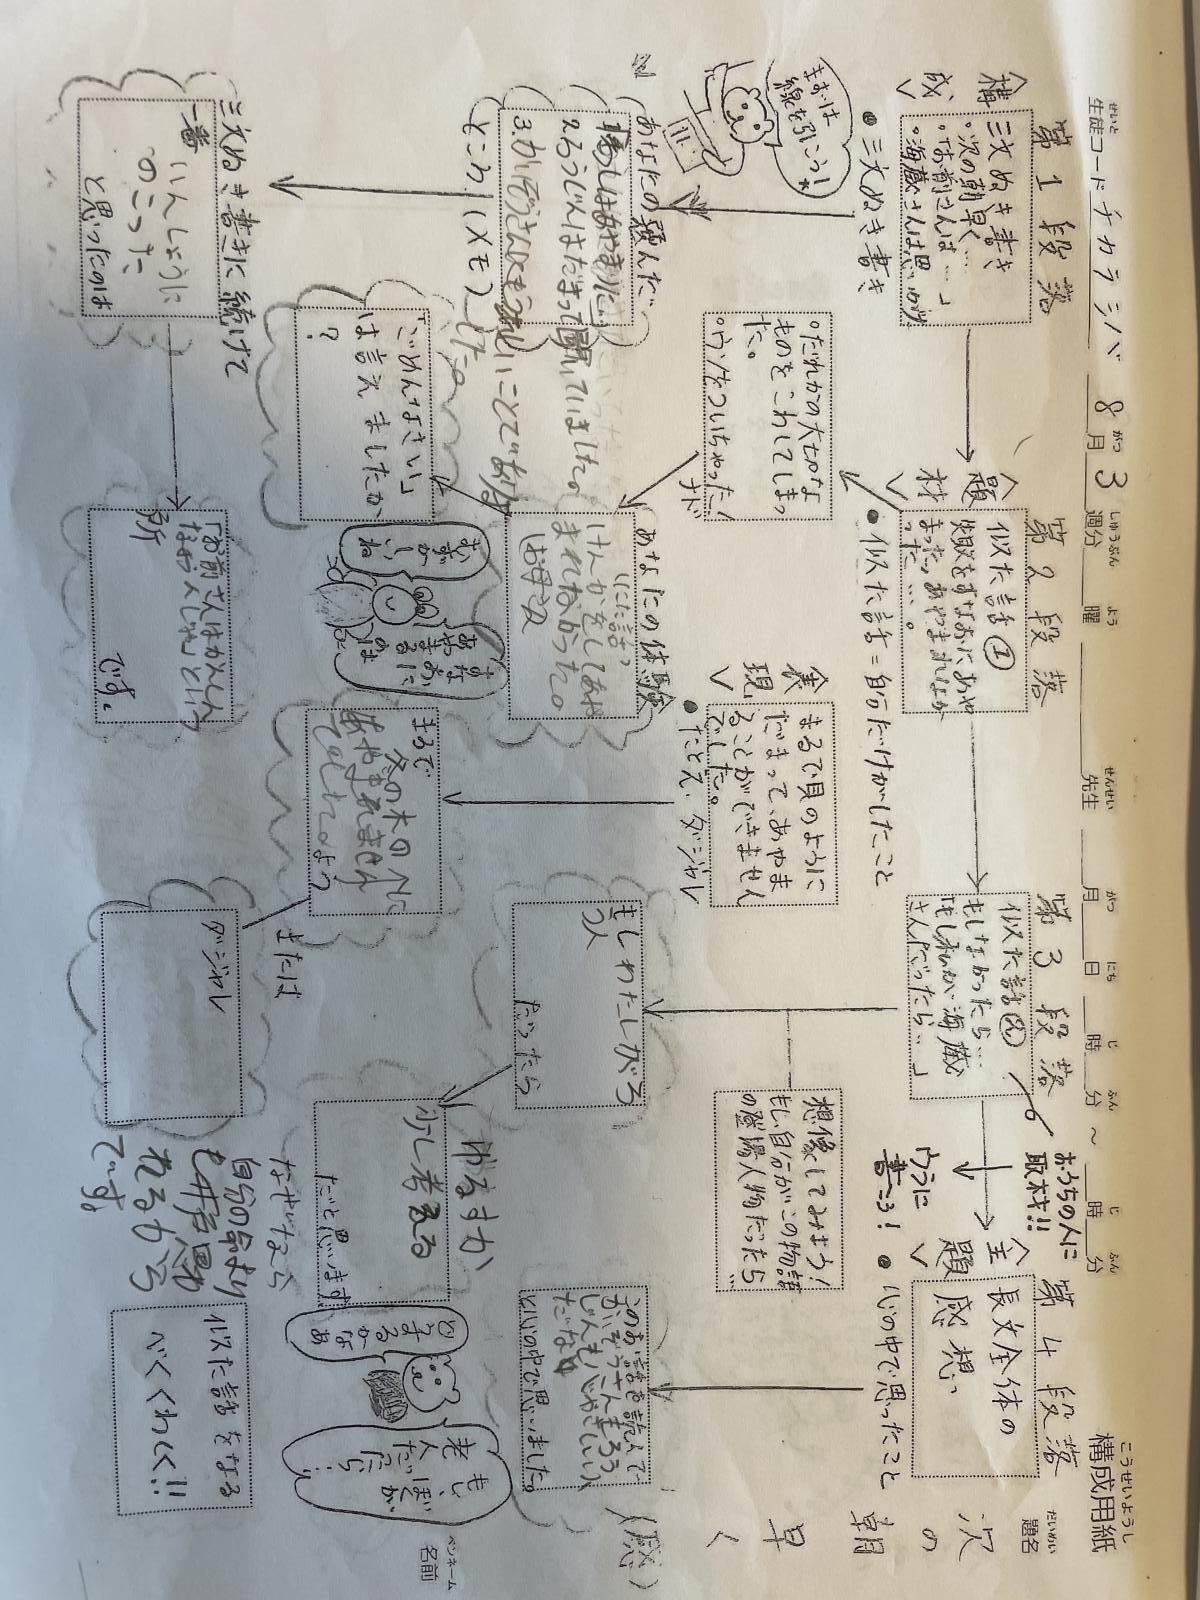 こうせいようし
構成用紙
せいと
生徒コード チカラシバ 8月3週分 曜 先生 月 日 時 分 ～ 時 分
がつ しゅうぶん よう せんせい がつ にち じ ふん じ ふん
だいめい
題名
次の朝早く
(感)
ペンネーム
名前
〈構成〉
第1段落
三文ぬき書き
・次の朝早く…
・「お前さんは…」
・海蔵さんは思
●三文ぬき書き
きおは
線を引こう!
あなたの選んだ
2.ろうじんはだまって聞いていました。
ところ!(メモ)
三文ぬき書きに続けて
一番
いんしょうに
のこった
と思ったのは
「お前さんはかんしん
な
所
です。
〈題材〉
第2段落
似た話①
●似た話=自分だけがしたこと
○だれかの大切な
ものをこわしてしまっ
た。
○ウソをついちゃった!
ナド
あなたの体験
(にた話)
けんかをしてあや
まれなかった。
お母さん
「ごめんなさい」
は言えましたか
?
すなおに
あやまる
のは
むずか
しいね
〈表現〉
●たとえ・ダジャレ
まるで貝のように
だまって、あやま
ることができません
でした。
まるで
冬の木の
あやまれません
でした
または
ダジャレ
第3段落
似た話②
もしなかったら…
「もし私が海蔵
さんだったら…」
おうちの人に
取材!!
ウラに
書こう!
想像してみよう!
もし自分がこの物語
の登場人物だったら
…
もしわたしがろ
う人
だったら
ゆるすか
少し考える
だと思います。
なぜなら
自分の命より
も井戸
れるから
です。
〈主題〉
第4段落
長文全体の
感想
●心の中で思ったこと
このお話を読んで
かいぞうさんもろう
じんも
だな
と心の中で思いました。
どう
する
かな
あ
もし、
ぼくが
老人
だったら!
似た話をなる
べくくわしく!!